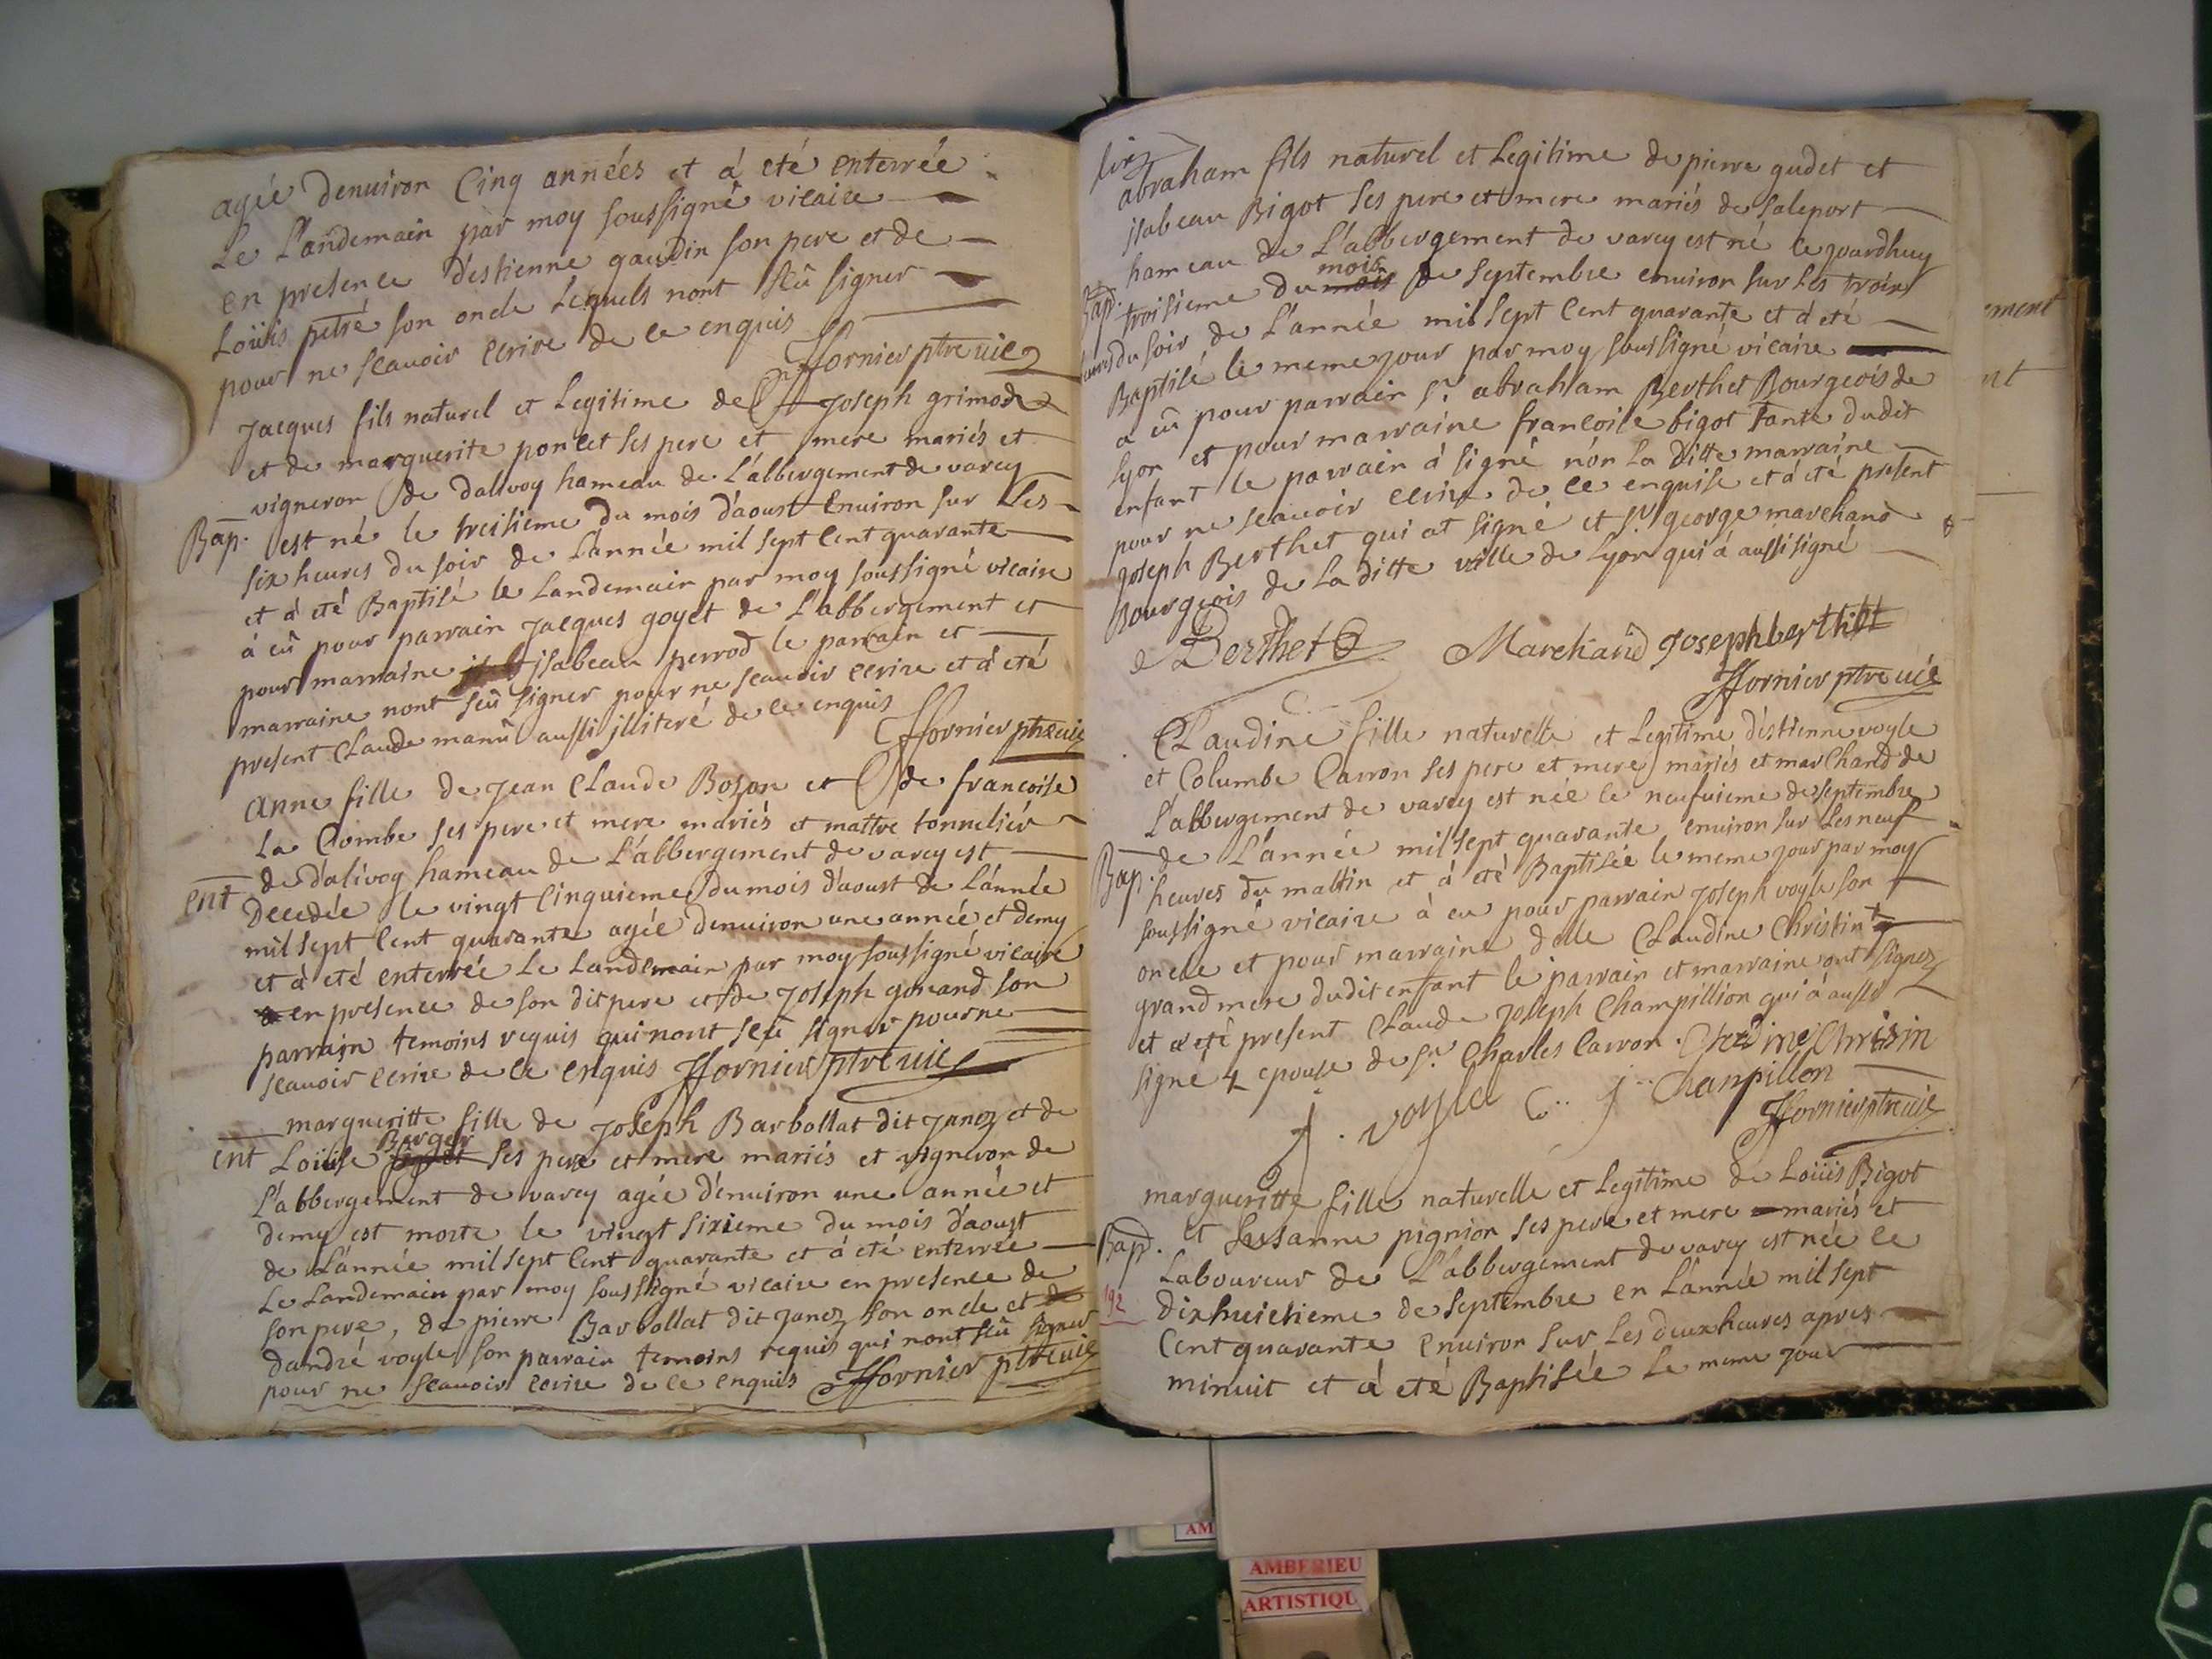 agée denuiron Cinq années et á eté enterrée
Le Landemain par moy soussigné vicaire
en presence d'estienne gaudin son pere et de
Loüis petré son oncle Lequels nont sçû signer
pour ne scauoir ecrire de ce enquis
ffornier ptre uic
Jacques fils naturel et Legitime de Joseph grimod
et de marguerite poncet ses pere et mere mariés et
vigneron de dalivoy hameau de L'abbergement de varey
Bap. est né le treisieme du mois d'aoust Enuiron sur Les
six heures du soir de L'année mil sept Cent quarante
et á eté Baptisé le Landemain par moy soussigné vicaire
á eû pour parrain Jacques goyet de L'abbergement et
pour marraine jsabeau perrod le parrain et
marraine nont seû signer pour ne scauoir ecrire et á eté
present Claude manû aussi jlliteré de ce enquis
ffornier ptre uic
Anne fille de Jean Claude Bozon et de francoise
La Combe ses pere et mere mariés et maître tonnelier
de dalivoy hameau de L'abbergement de varey est
ent Decedée le vingt Cinquieme du mois d'aoust de L'année
mil sept Cent quarante agée denuiron une année et demy
et á eté enterrée Le Landemain par moy soussigné vicaire
en presence de son dit pere et de Joseph gonand son
parrain temoins requis qui nont seû signer pour ne
scauoir ecrire de ce enquis ffornier ptre uic
margueritte fille de Joseph Barbollat dit Janoz et de
Berger
ent Loüise ses pere et mere mariés et vigneron de
L'abbergement de varey agée d'enuiron une année et
demy est morte le vingt sixieme du mois d'aoust
de L'année mil sept Cent quarante et á eté enterrée
Le Landemain par moy soussigné vicaire en presence de
son pere, de pierre Barbollat dit Janoz son oncle et
dandré voyle son parrain temoins requis qui nont sçû signer
pour ne scauoir ecrire de ce enquis ffornier ptre uic
abraham fils naturel et Legitime de pierre gudet et
jsabeau Bigot ses pere et mere mariés de saleport
hameau de L'abbergement de varey est né ce jourdhuy
mois
Bap. troisieme du mois de Septembre enuiron sur Les trois
heures du soir de L'année mil sept Cent quarante et á eté
Baptisé le meme jour par moy soussigné vicaire
a eû pour parrain Sr. abraham Berthet Bourgeois de
Lyon et pour marraine francoise bigot Tante dudit
enfant le parrain á signé nón La ditte marraine
pour ne scauoir ecrire de ce enquise et á eté present
Joseph Berthet qui at signé et Sr. george marchand
Bourgeois de La ditte ville de Lyon qui á aussi signé
Berthet Marchand Joseph berthet
ffornier ptre uic
Claudine fille naturelle et Legitime d'estienne voyle
et Columbe Carron ses pere et mere mariés et marChand de
L'abbergement de varey est née le neufuieme de septembre
de L'année mil sept quarante enuiron sur Les neuf
Bap. heures du mattin et á eté Baptisée le meme jour par moy
soussigné vicaire á eu pour parrain Joseph voyle son
oncle et pour marraine dlle Claudine Christin +
grand mere dudit enfant le parrain et marraine ont signez
et á eté present Claude Joseph Champillion qui á aussi
signé + epouse de Sr. Charles Carron. Clodine Chrisin
j. voyle C.. j.. Champillon
ffornier ptre uic
margueritte fille naturelle et Legitime de Loüis Bigot
Bap. et Susanne pignion ses pere et mere mariés et
Laboureur de L'abbergement de varey est née le
192
dixhuictieme de septembre en L'année mil sept
Cent quarante enuiron sur Les deux heures apres
minuit et á eté Baptisée Le meme jour
ement
nt
AM
AMBERIEU
ARTISTIQU